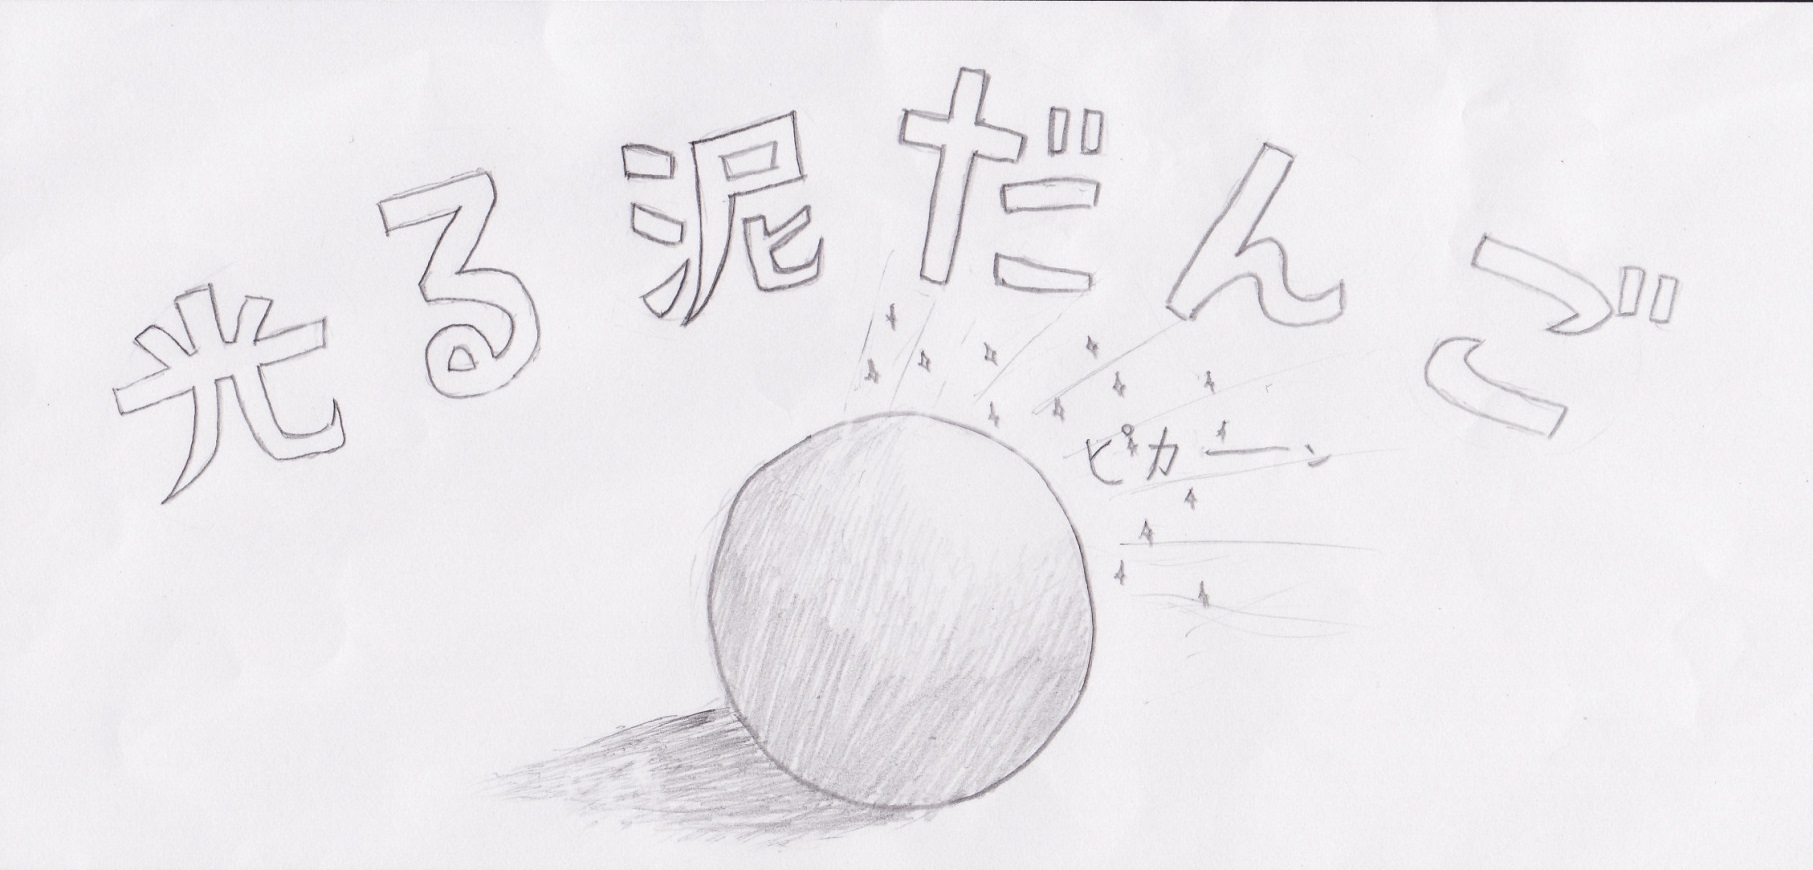 光る泥だんご
ピカーン